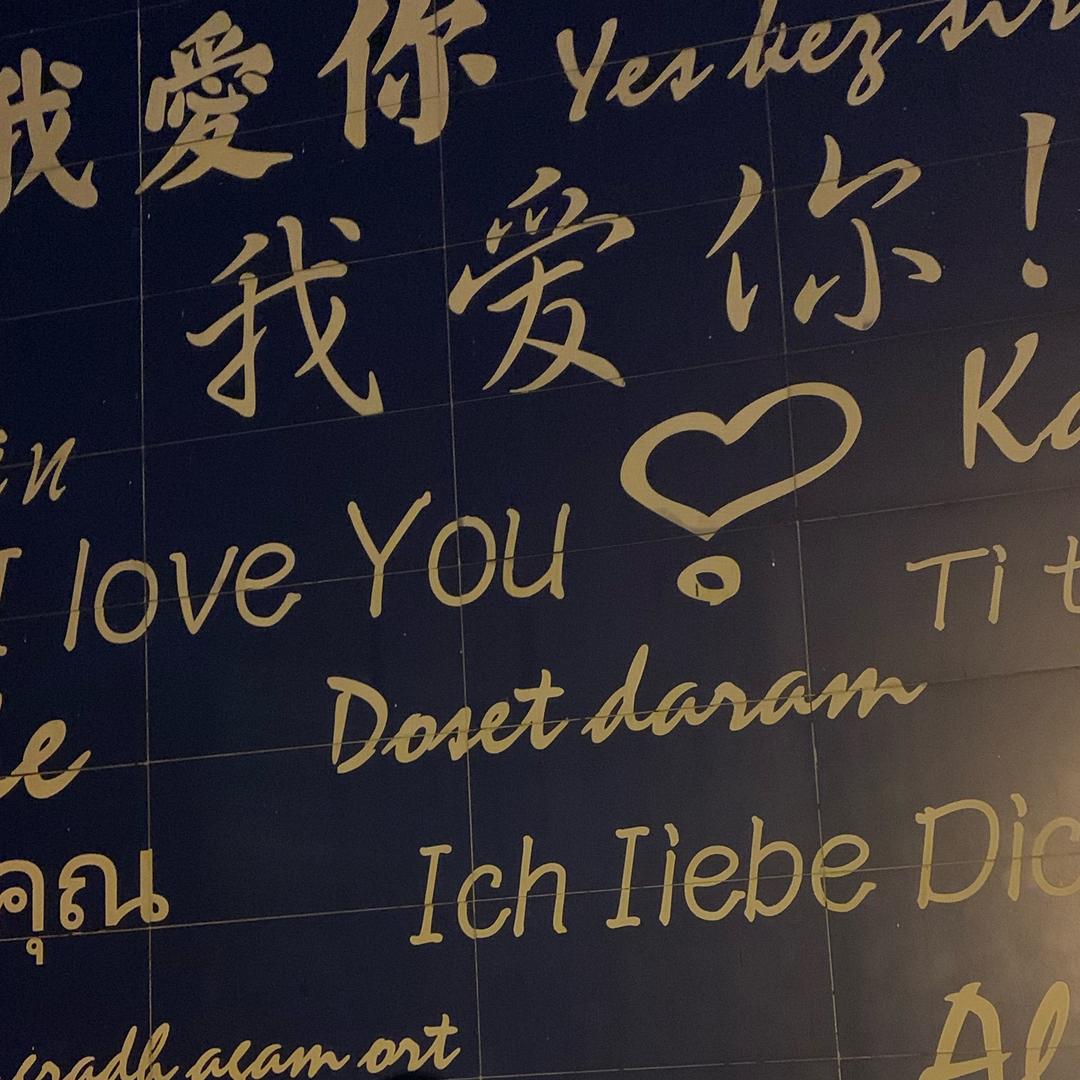 我愛你 Yes kez sir
我爱你!
in
Ka
I love You
Ti t
le
Doset daram
คุณ
Ich Iiebe Dic
gradh agam ort
Al